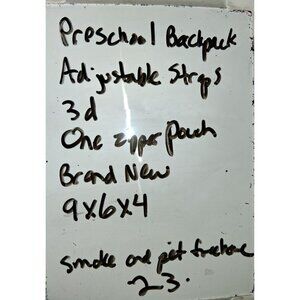 Preschool Backpack
Adjustable Straps
3d
One zipper Pouch
Brand New
9x6x4
smoke and pet free home
23.